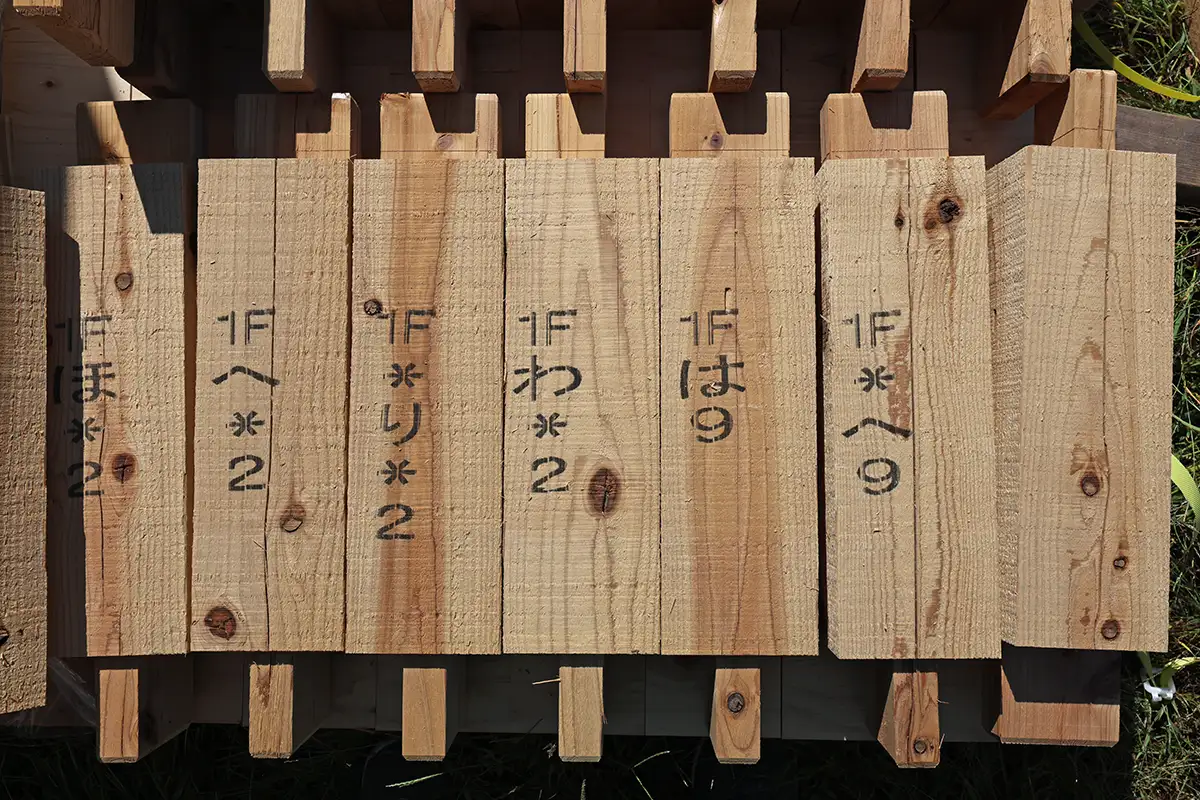 1F
ほ
*
2
1F
へ
*
2
1F
*
り
*
2
1F
わ
*
2
1F
は
9
1F
*
へ
9